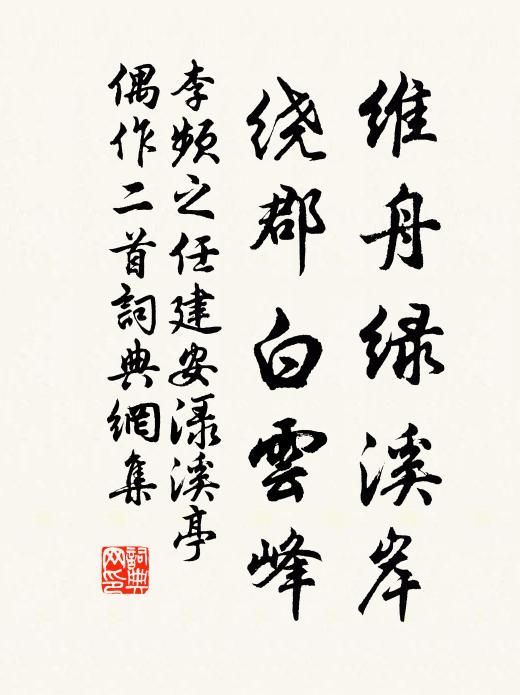 维舟绿溪岸
绕郡白雲峰
李频之任建安渌溪亭
偶作二首詞典網集
詞典网印